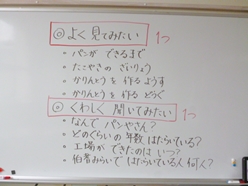 ◎ よく見てみたい 1つ
・パンが できるまで
・たこやきの ざいりょう
・かりんとうを 作る ようす
・かりんとうを 作る どうぐ
◎ くわしく 聞いてみたい 1つ
・なんで パンやさん?
・どのくらいの 年数 はたらいている?
・工場が できたのは いつ?
・伯耆みらいで はたらいている人 何人?